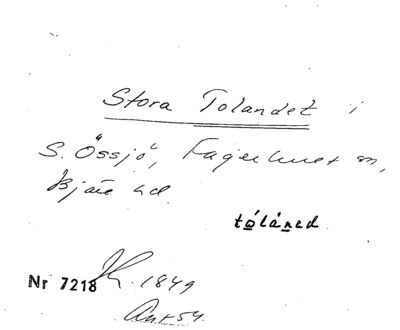 Stora Tolandet i
S. Össjö, Fagerhult sn,
Bjäre hd.
tóláned
Nr 7218 1849